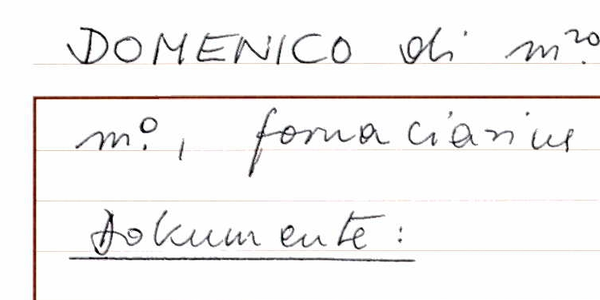 DOMENICO di m.ro
m.o, fornaciarius
Dokumente: